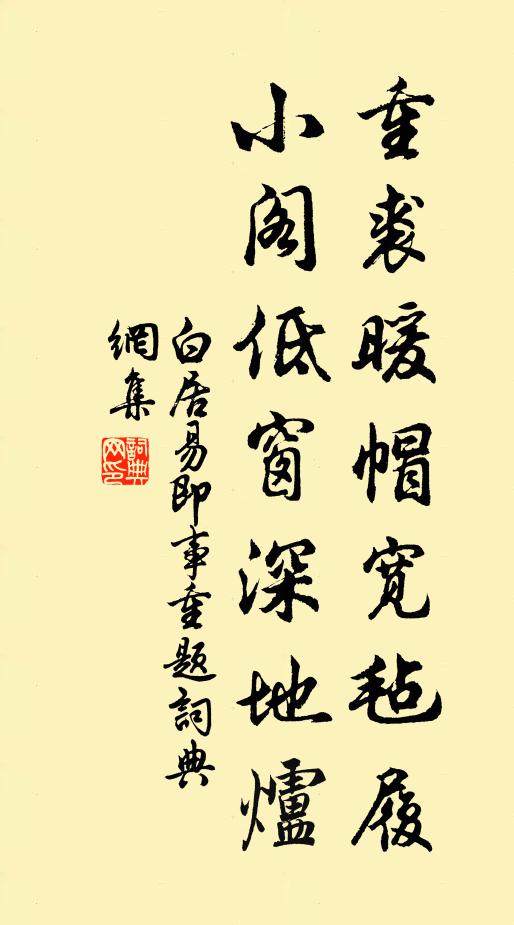 重裘暖帽宽毡履
小阁低窗深地爐
白居易即事重题詞典
網集
詞典網印